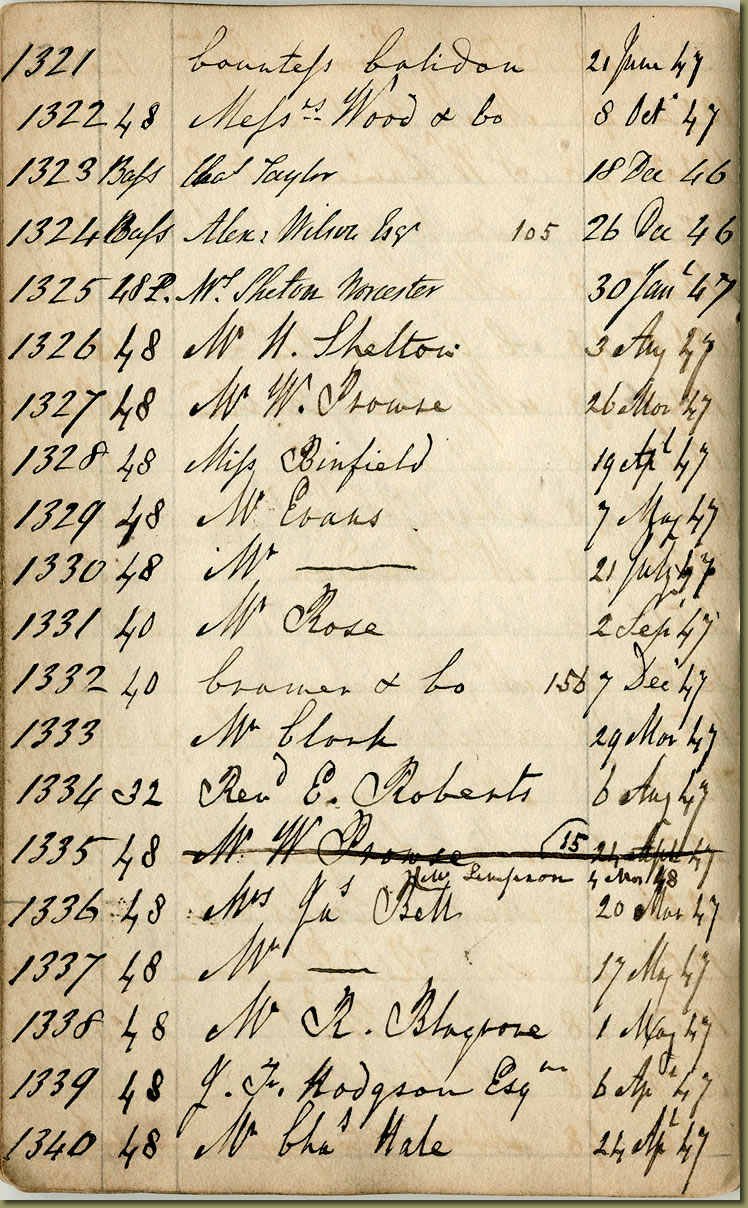 1321 Countess Calidon 21 June 47
1322 48 Messrs Wood & Co 8 Oct 47
1323 Bass Chas Taylor 18 Dec 46
1324 Bass Alexr Wilson Esqr 105 26 Dec 46
1325 48 P. Mrs Sheton Worcester 30 Jany 47
1326 48 Mr H. Shelton 3 Aug 47
1327 48 Mr W. Prowse 26 Mar 47
1328 48 Miss Binfield 19 Apl 47
1329 48 Mr Evans 7 May 47
1330 48 Mr —— 21 July 47
1331 40 Mr Rose 2 Sep 47
1332 40 Cramer & Co 156 7 Dec 47
1333 Mr Clark 29 Mar 47
1334 32 Revd E. Roberts 6 Aug 47
1335 48 Mr W Prowse 15 21 Apl 47
Simpson 4 Mar 48
1336 48 Mrs Jas Bell 20 Mar 47
1337 48 Mr —— 17 May 47
1338 48 Mr R. Blagrove 1 May 47
1339 48 J. Fr. Hodgson Esqre 6 Apl 47
1340 48 Mr Chas Hale 24 Apl 47